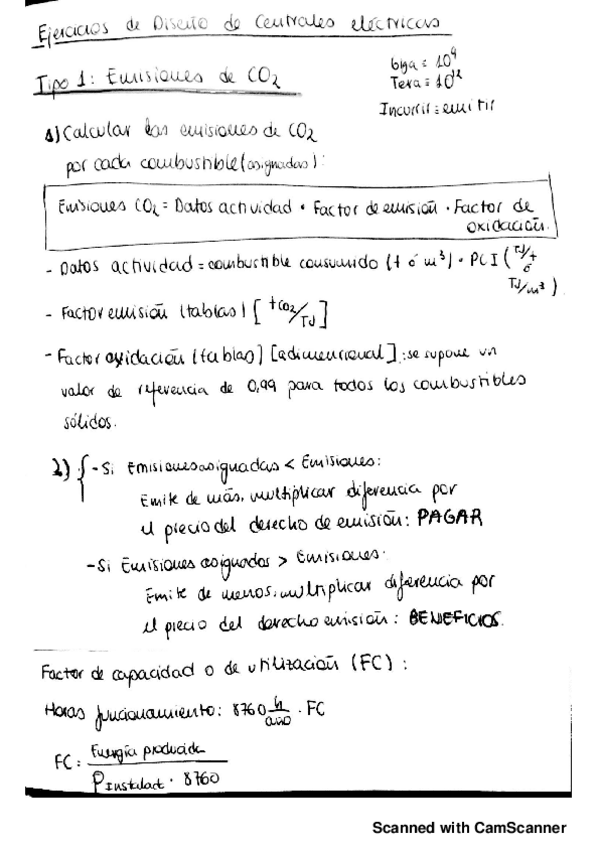 Ejercicios de Diseño de Centrales eléctricas
Tipo 1: Emisiones de CO2
Giga = 10^9
Tera = 10^12
Incurrir = emitir
1) Calcular las emisiones de CO2
por cada combustible (asignadas):
Emisiones CO2 = Datos actividad · Factor de emisión · Factor de
oxidación.
- Datos actividad = combustible consumido (t ó m³) · PCI (TJ/t
ó
TJ/m³)
- Factor emisión (tablas) [tCO2/TJ]
- Factor oxidación (tablas) [adimensional]: se supone un
valor de referencia de 0,99 para todos los combustibles
sólidos.
2) { - Si Emisiones asignadas < Emisiones:
Emite de más, multiplicar diferencia por
el precio del derecho de emisión: PAGAR
- Si Emisiones asignadas > Emisiones:
Emite de menos, multiplicar diferencia por
el precio del derecho emisión: BENEFICIOS.
Factor de capacidad o de utilización (FC):
Horas funcionamiento: 8760 h/año · FC
FC = Energía producida
P Instalad · 8760
Scanned with CamScanner